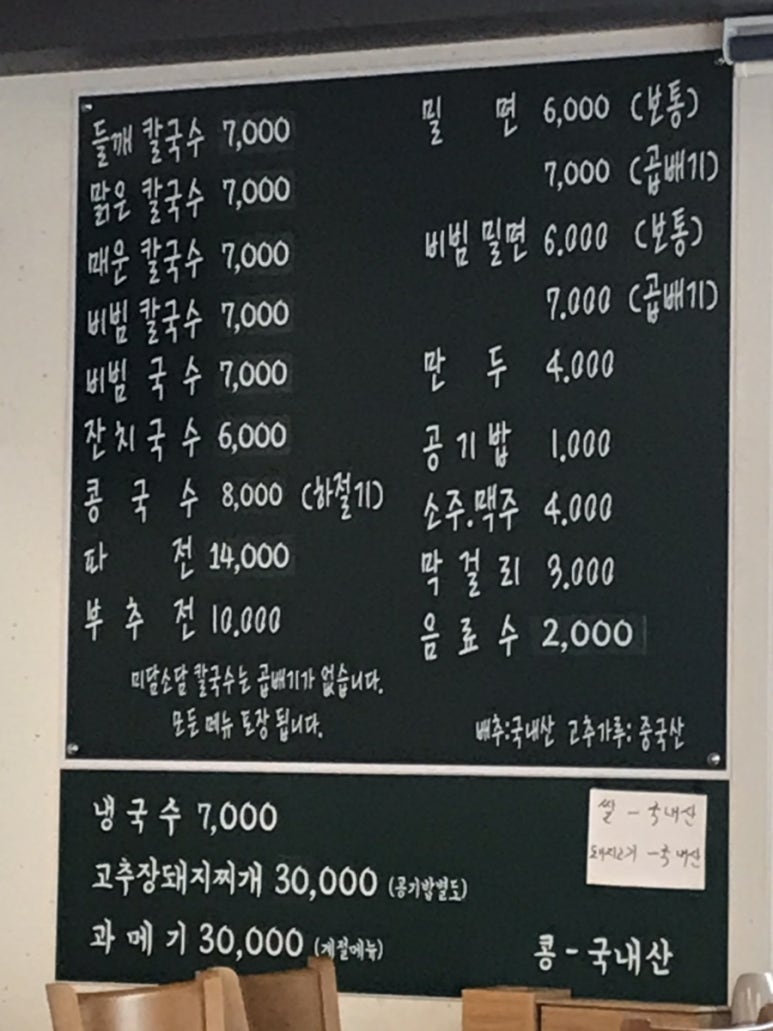 들깨 칼국수 7,000
맑은 칼국수 7,000
매운 칼국수 7,000
비빔 칼국수 7,000
비빔 국수 7,000
잔치국수 6,000
콩국수 8,000 (하절기)
파전 14,000
부추전 10,000
미담소담 칼국수는 곱배기가 없습니다.
모든 메뉴 포장 됩니다.
밀면 6,000 (보통)
7,000 (곱배기)
비빔 밀면 6.000 (보통)
7.000 (곱배기)
만두 4.000
공기밥 1.000
소주.맥주 4.000
막걸리 3.000
음료수 2,000
배추:국내산 고추가루: 중국산
냉국수 7,000
고추장돼지찌개 30,000 (공기밥별도)
과메기 30,000 (계절메뉴)
쌀 - 국내산
돼지고기 - 국내산
콩 - 국내산